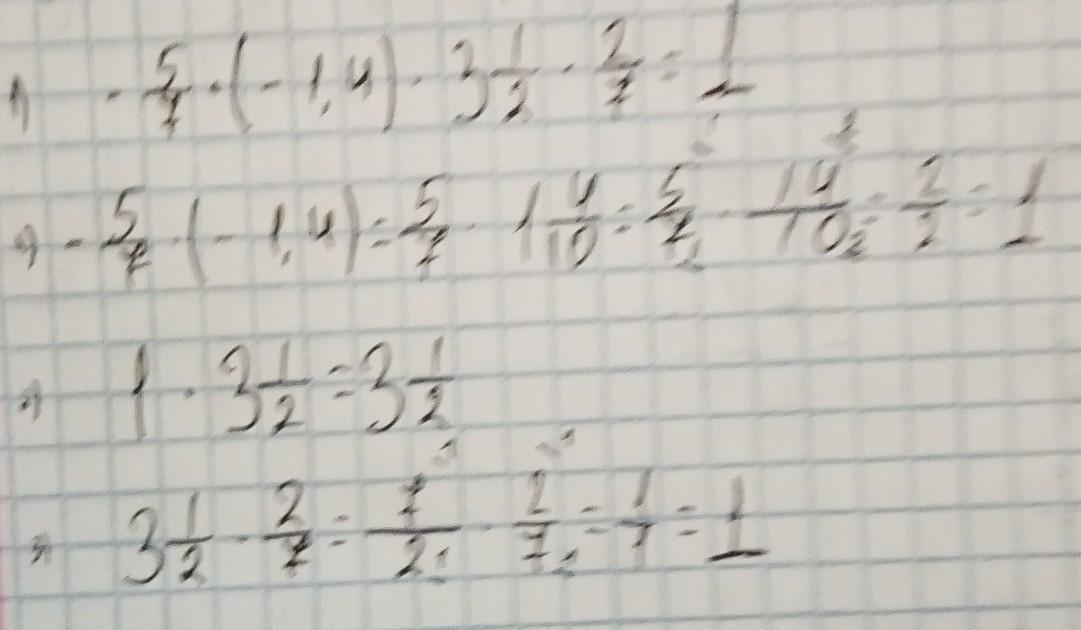 1) - 5/7 · (- 1,4) · 3 1/2 · 2/7 = 1
1) - 5/7 · (- 1,4) = 5/7 · 1 4/10 = 5/7 · 14/10 = 2/2 = 1
2) 1 · 3 1/2 = 3 1/2
3) 3 1/2 · 2/7 = 7/2 · 2/7 = 1/1 = 1